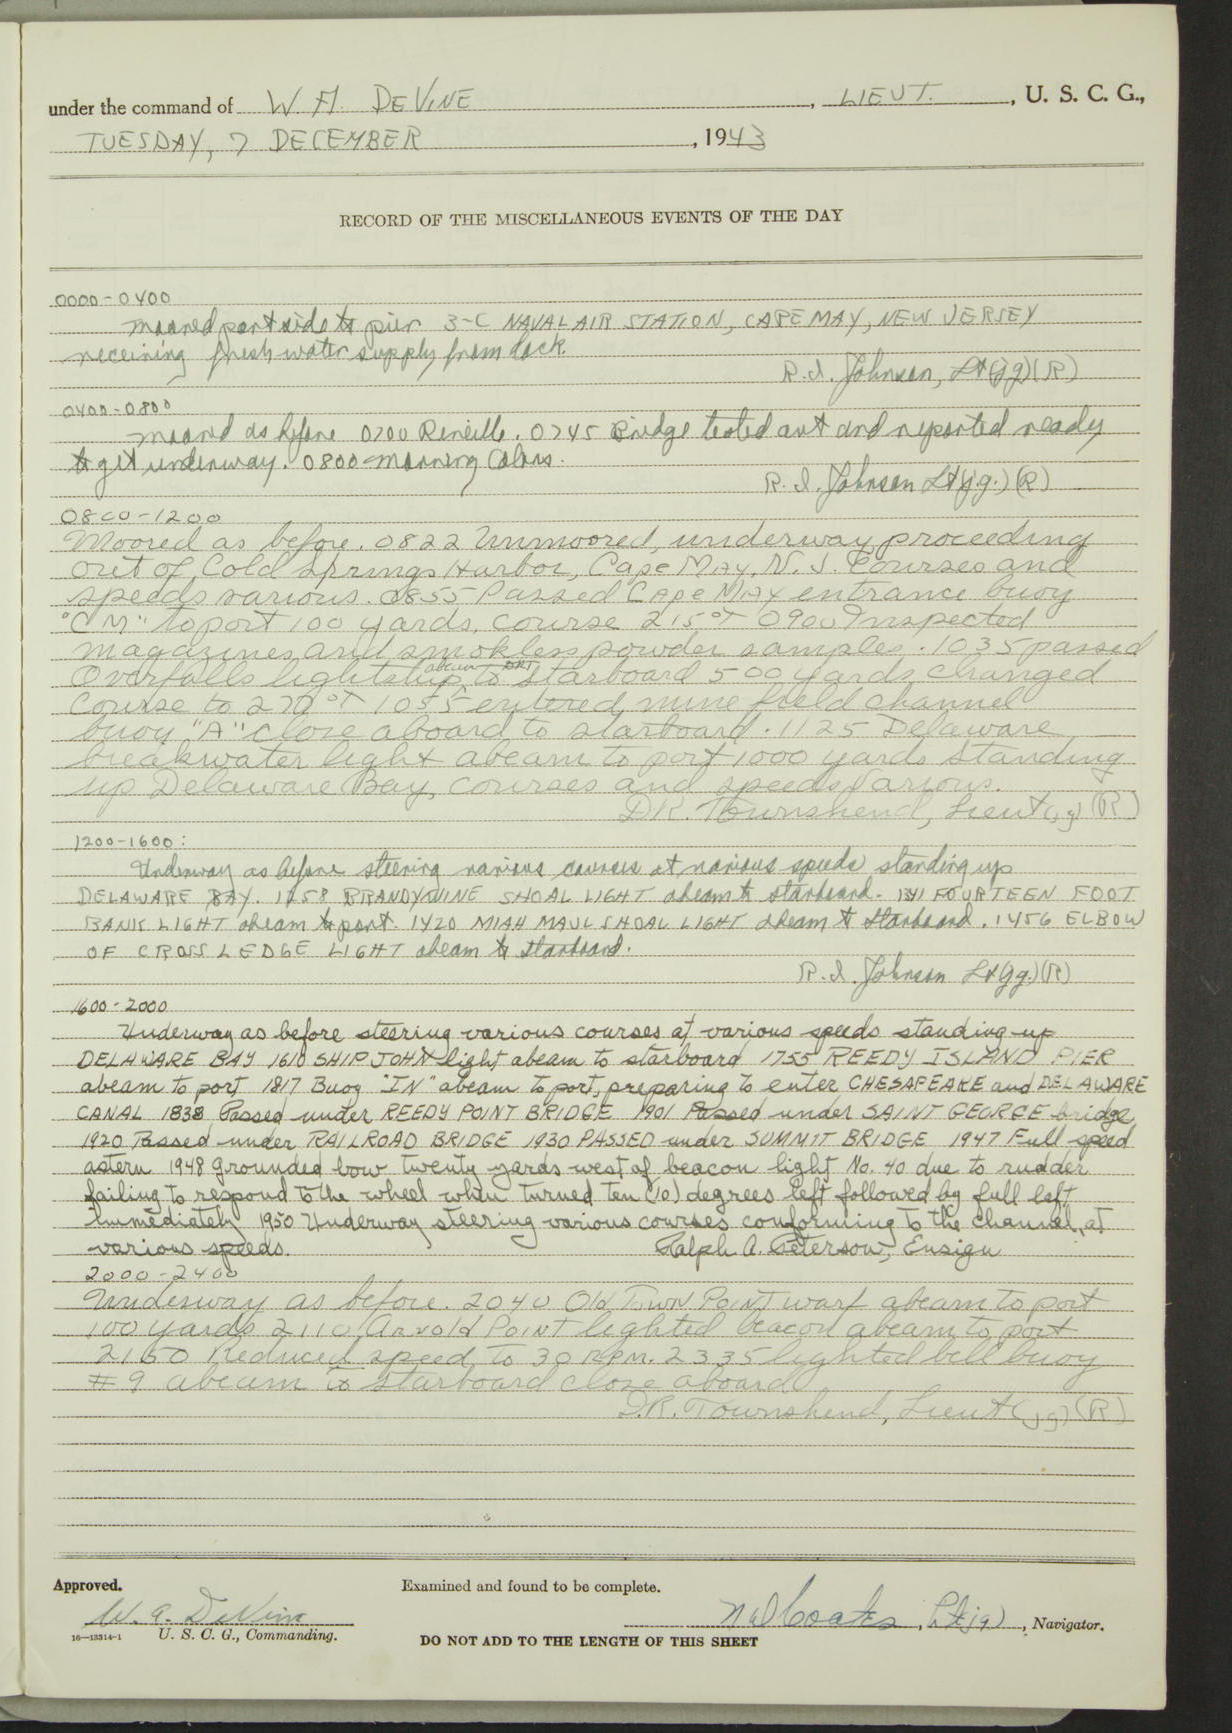 under the command of W. A. DEVINE, LIEUT., U. S. C. G.,
TUESDAY, 7 DECEMBER, 1943
RECORD OF THE MISCELLANEOUS EVENTS OF THE DAY
0000-0400
Moored port side to pier 3-C NAVAL AIR STATION, CAPE MAY, NEW JERSEY
receiving fresh water supply from dock.
R. I. Johnson, Lt(jg)(R)
0400-0800
Moored as before 0700 Reveille. 0745 Bridge tested out and reported ready
to get underway. 0800-Morning Colors.
R. I. Johnson Lt(j.g.)(R)
0800-1200
Moored as before. 0822 Unmoored, underway proceeding
out of Cold Springs Harbor, Cape May, N. J. Courses and
speeds various. 0855 Passed Cape May entrance buoy
"CM" to port 100 yards, course 215°T 0900 Inspected
magazines and smokless powder samples. 1035 passed
Overfalls lightship abeam to starboard 500 yards changed
Course to 270°T 1055 entered mine field channel
buoy "A" close aboard to starboard. 1125 Delaware
breakwater light abeam to port 1000 yards standing
up Delaware Bay, courses and speeds various.
D.R. Townshend, Lieut(jg)(R)
1200-1600:
Underway as before steering various courses at various speeds standing up
DELAWARE BAY. 1258 BRANDYWINE SHOAL LIGHT abeam to starboard. 1341 FOURTEEN FOOT
BANK LIGHT abeam to port. 1420 MIAH MAUL SHOAL LIGHT abeam to starboard. 1456 ELBOW
OF CROSS LEDGE LIGHT abeam to starboard.
R. I. Johnson Lt(jg.)(R)
1600-2000
Underway as before steering various courses at various speeds standing up
DELAWARE BAY 1610 SHIP JOHN light abeam to starboard 1755 REEDY ISLAND PIER
abeam to port, 1817 Buoy "IN" abeam to port, preparing to enter CHESAPEAKE and DELAWARE
CANAL 1838 Passed under REEDY POINT BRIDGE 1901 Passed under SAINT GEORGE bridge
1920 Passed under RAILROAD BRIDGE 1930 PASSED under SUMMIT BRIDGE 1947 Full speed
astern 1948 grounded bow twenty yards west of beacon light No. 40 due to rudder
failing to respond to the wheel when turned ten (10) degrees left followed by full left
immediately 1950 Underway steering various courses conforming to the channel, at
various speeds. Ralph A. Peterson, Ensign
2000-2400
Underway as before. 2040 Old Town Point warf abeam to port
100 yards 2110 Arnold Point lighted beacon abeam to port
2150 Reduced speed to 30 RPM. 2335 lighted bell buoy
#9 abeam to starboard close aboard
D.R. Townshend, Lieut(jg)(R)
Approved. Examined and found to be complete.
W. A. DeVine Coates, Lt(jg), Navigator.
16—13314-1 U. S. C. G., Commanding. DO NOT ADD TO THE LENGTH OF THIS SHEET